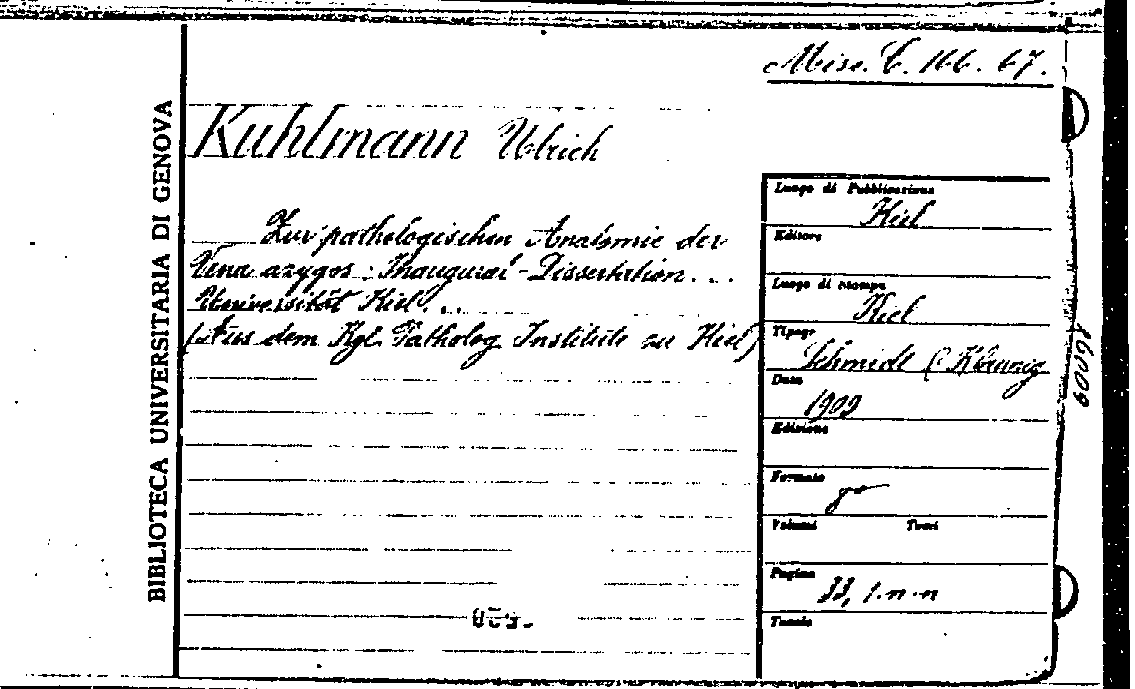 Misc. C. 166. 67.
Kuhlmann Ulrich
Zur pathologischen Anatomie der
Vena azygos : Inaugural-Dissertation...
Universität Kiel...
(Aus dem Kgl. Patholog Institute zu Kiel)
BIBLIOTECA UNIVERSITARIA DI GENOVA
Luogo di Pubblicazione
Kiel
Editore
Luogo di stampa
Kiel
Tipogr
Schmidt &
Data
1909
Edizione
Formato
8°
Volumi Tomi
Pagine
33, 1 n. n
Tavole
16009